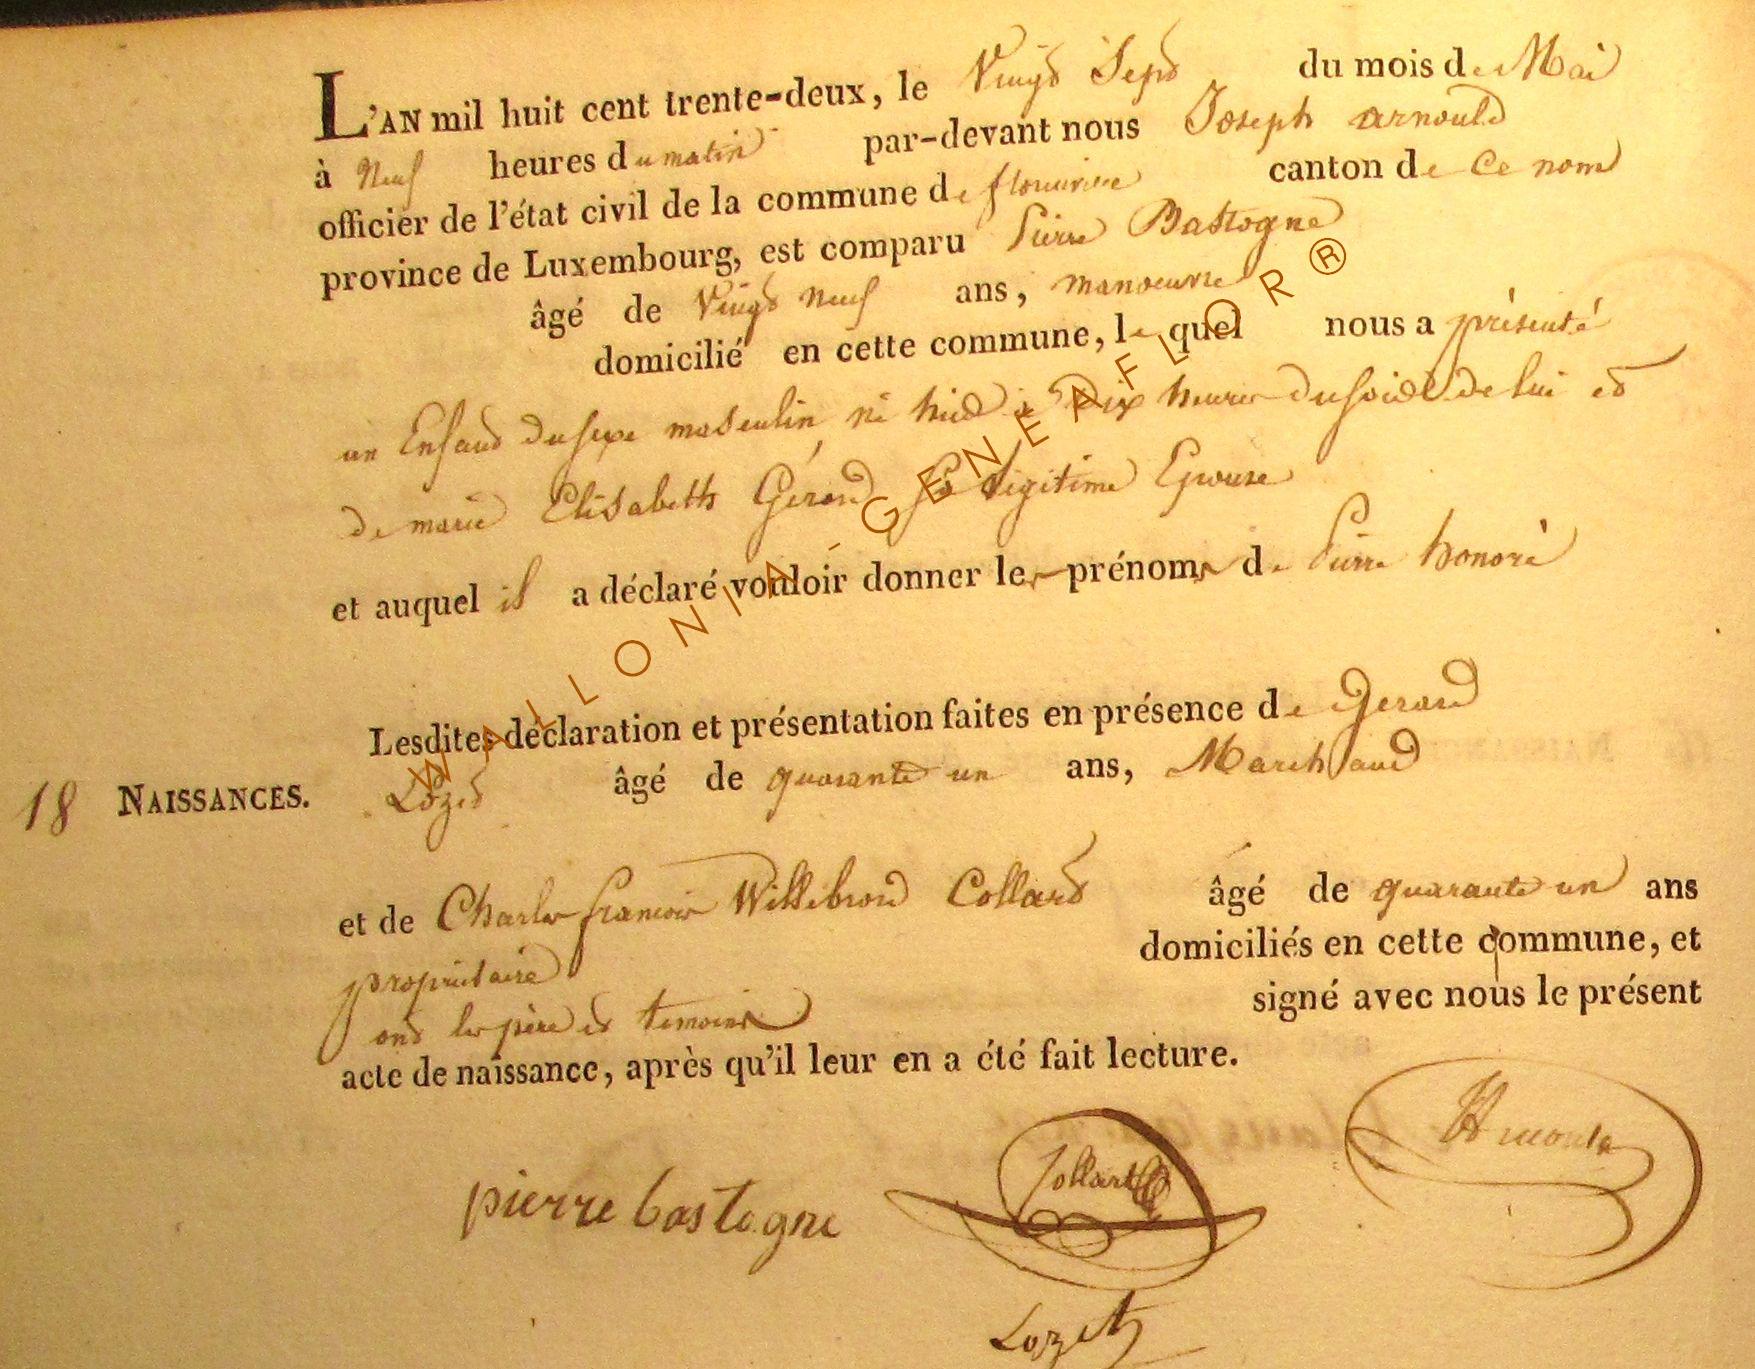 L'AN mil huit cent trente-deux, le Vingt Sept du mois de Mai
à Neuf heures du matin par-devant nous Joseph arnould
officier de l'état civil de la commune de florenville canton de Ce nom
province de Luxembourg, est comparu Pierre Bastogne
âgé de Vingt Neuf ans, manoeuvre
domicilié en cette commune, le quel nous a présenté
un Enfant du sexe masculin né à Dix heures du soir de lui et
de marie Elisabeth Gérard Sa légitime Epouse
et auquel il a déclaré vouloir donner les prénoms de Pierre honoré
Lesdites déclaration et présentation faites en présence de Gerard
18 NAISSANCES. Lozet âgé de quarante un ans, Marchand
et de Charles francois Willibrord Collard âgé de quarante un ans
propriétaire domiciliés en cette commune, et
ont les père et temoins signé avec nous le présent
acte de naissance, après qu'il leur en a été fait lecture.
pierre bastogne Collart Arnould
Lozet
WALLONIA-GENEAFLOR®